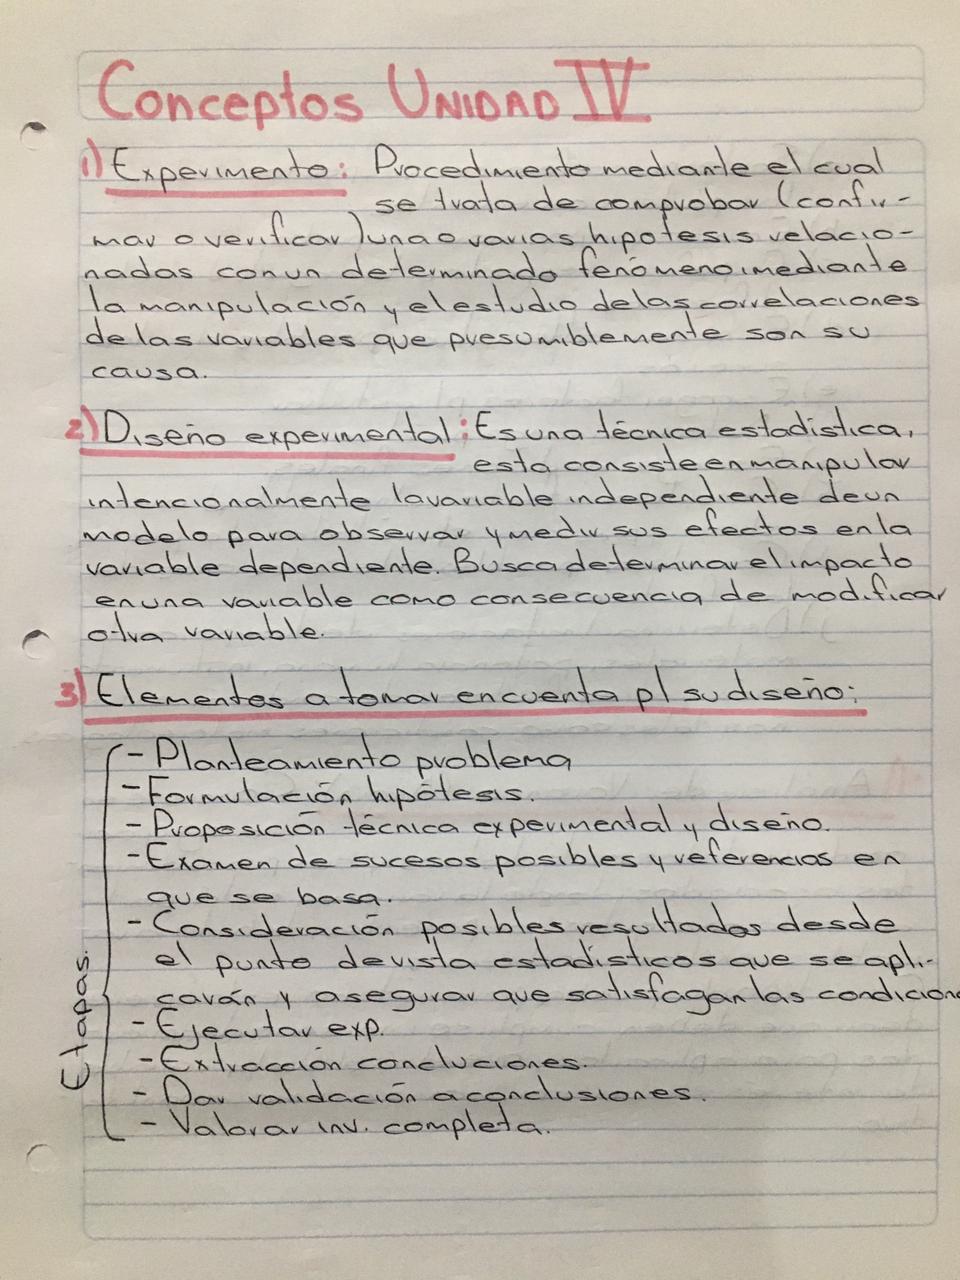 Conceptos UNIDAD IV
1) Experimento: Procedimiento mediante el cual
se trata de comprobar (confir-
mar o verificar) una o varias hipótesis relacio-
nadas con un determinado fenómeno, mediante
la manipulación y el estudio de las correlaciones
de las variables que presumiblemente son su
causa.
2) Diseño experimental: Es una técnica estadística,
esta consiste en manipular
intencionalmente la variable independiente de un
modelo para observar y medir sus efectos en la
variable dependiente. Busca determinar el impacto
en una variable como consecuencia de modificar
otra variable.
3) Elementos a tomar en cuenta p/ su diseño:
Etapas.
- Planteamiento problema
- Formulación hipótesis.
- Proposición técnica experimental y diseño.
- Examen de sucesos posibles y referencias en
que se basa.
- Consideración posibles resultados desde
el punto de vista estadísticos que se apli-
carán y asegurar que satisfagan las condicion
- Ejecutar exp.
- Extracción concluciones.
- Dar validación a conclusiones.
- Valorar inv. completa.